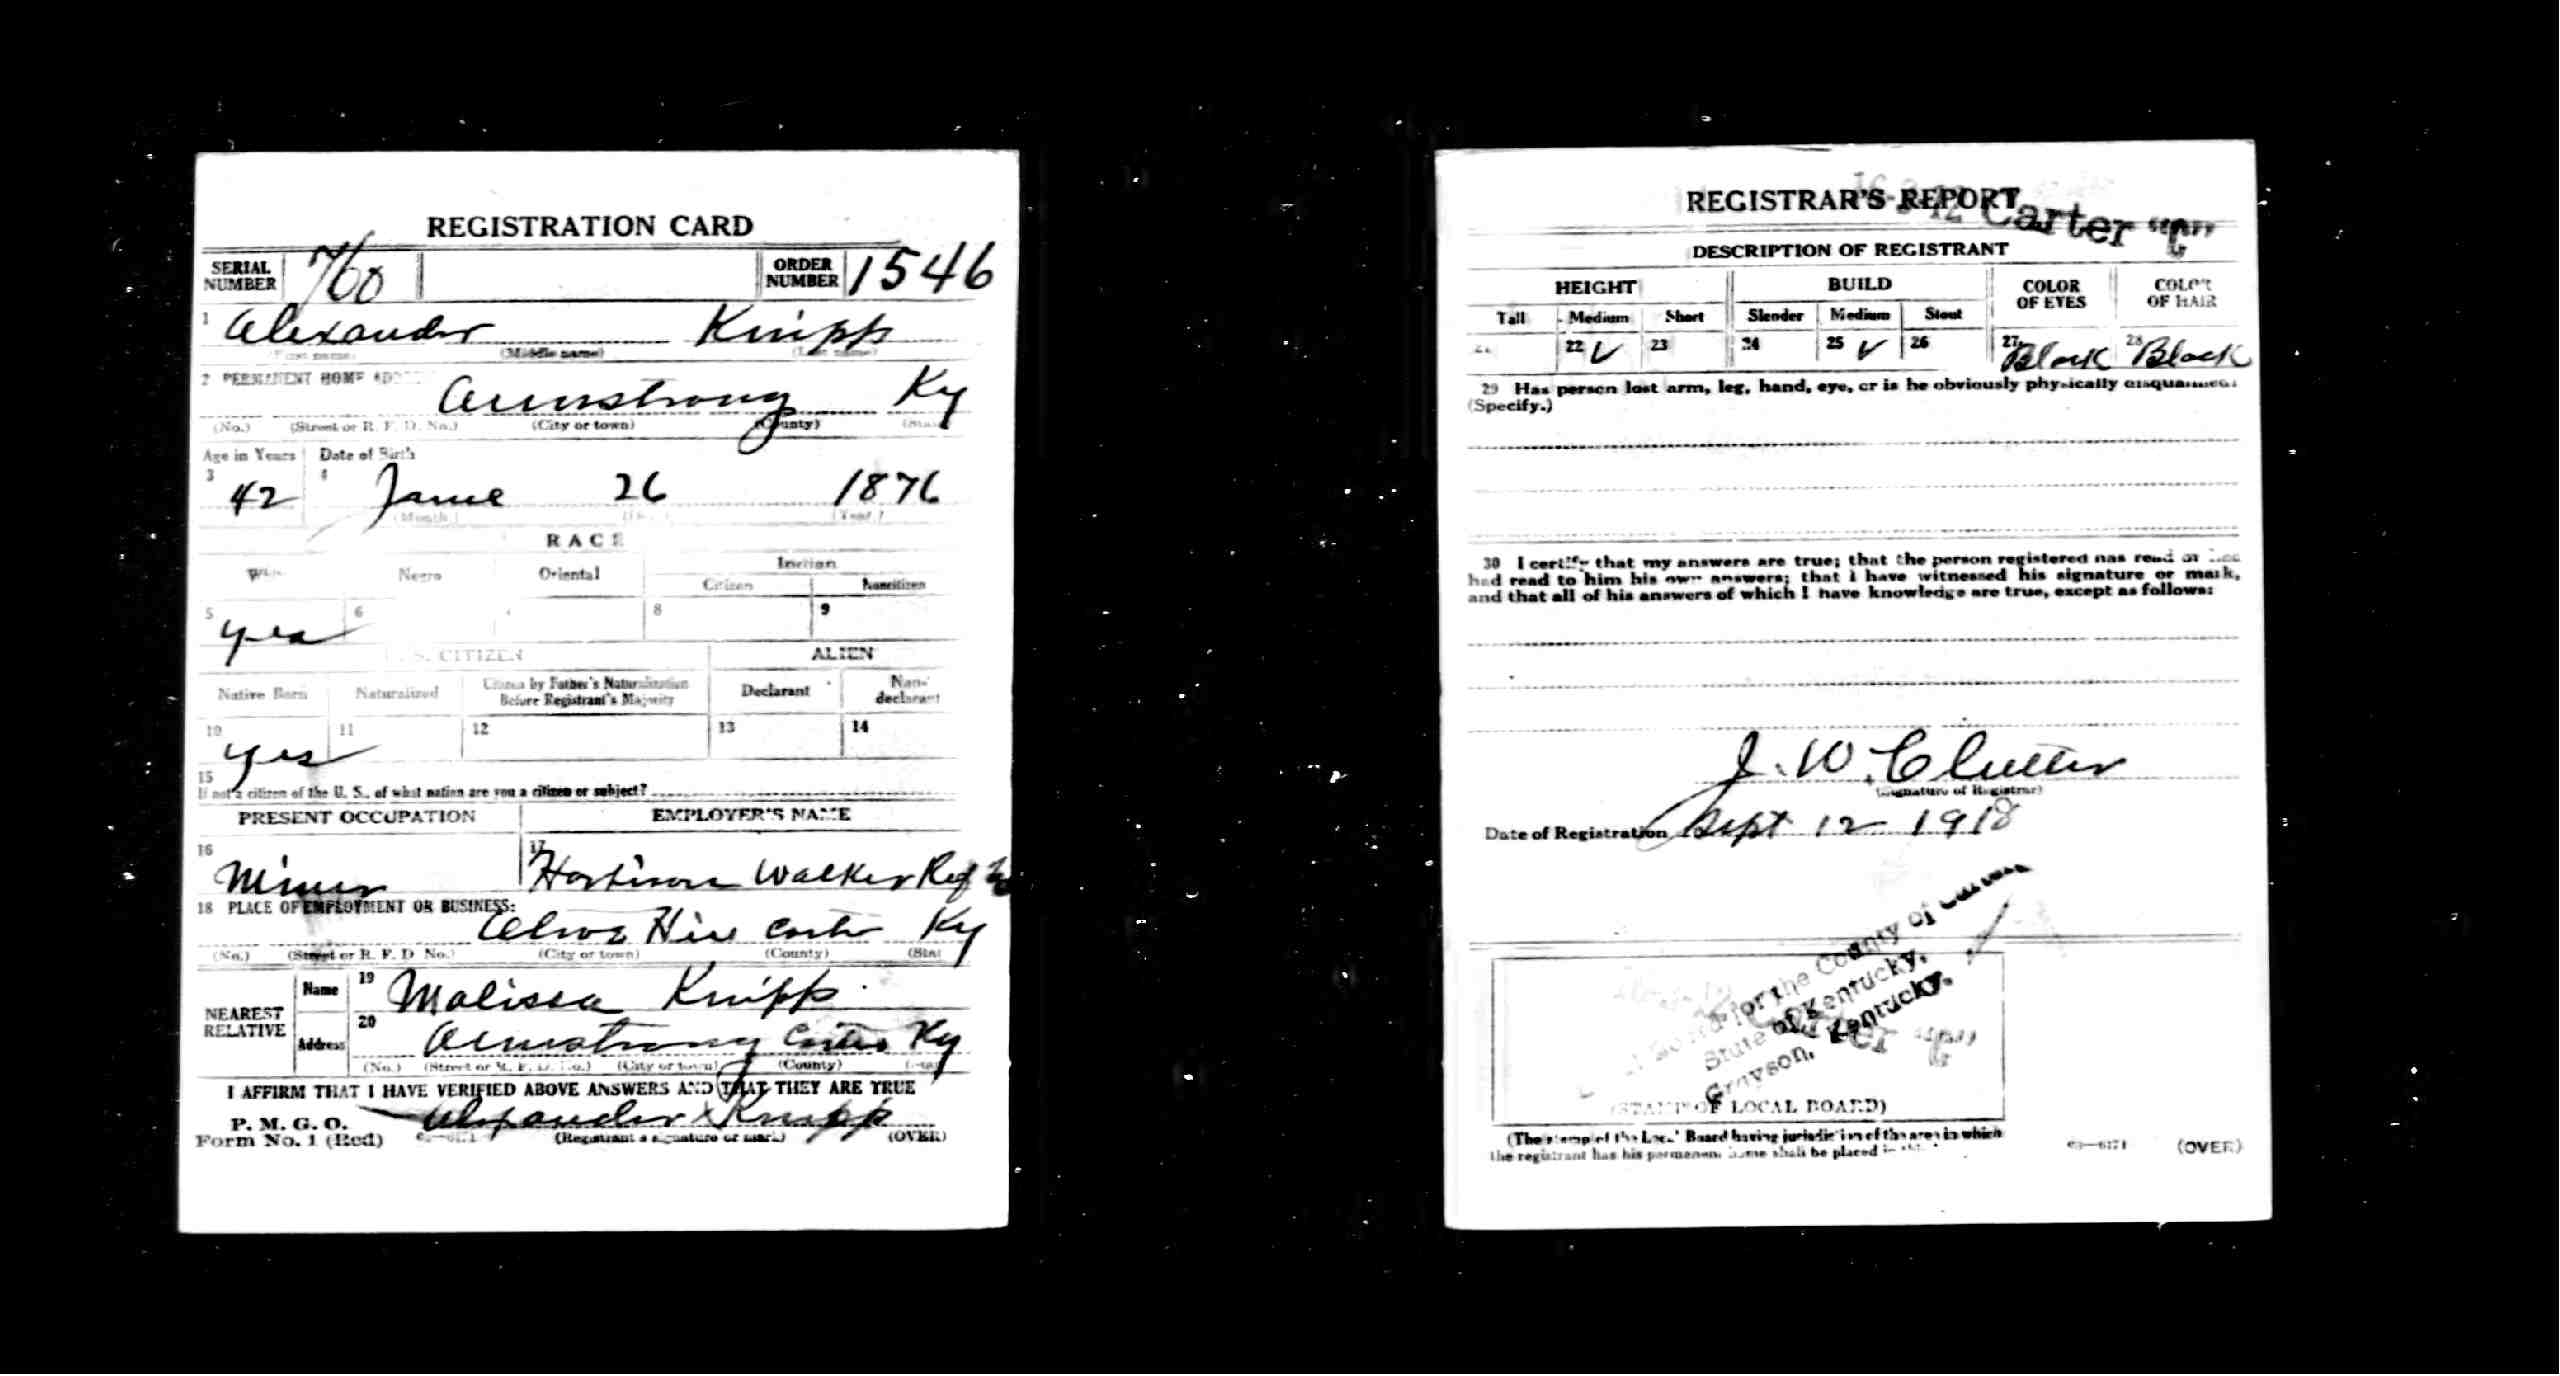 REGISTRATION CARD
SERIAL NUMBER 760 ORDER NUMBER 1546
1 Alexander Knipp
(First name) (Middle name) (Last name)
2 PERMANENT HOME ADD
Armstrong Ky
(No.) (Street or R. F. D. No.) (City or town) (County) (State)
Age in Years Date of Birth
3 42 4 26 1876
(Month.) (Day.) (Year.)
RACE
White Negro Oriental Indian
Citizen Noncitizen
5 yes 6 8 9
U. S. CITIZEN ALIEN
Native Born Naturalized Citizen by Father's Naturalization Before Registrant's Majority Declarant Non-declarant
10 yes 11 12 13 14
15
If not a citizen of the U. S., of what nation are you a citizen or subject?
PRESENT OCCUPATION EMPLOYER'S NAME
16 Miner 17 Walker Ref
18 PLACE OF EMPLOYMENT OR BUSINESS:
Olive Hill Carter Ky
(No.) (Street or R. F. D. No.) (City or town) (County) (State)
NEAREST RELATIVE Name 19 Malissa Knipp
Address 20 Armstrong Carter Ky
(No.) (Street or R. F. D. No.) (City or town) (County) (State)
I AFFIRM THAT I HAVE VERIFIED ABOVE ANSWERS AND THAT THEY ARE TRUE
P. M. G. O.
Form No. 1 (Red) Alexander x Knipp
(Registrant's signature or mark) (OVER)
REGISTRAR'S REPORT
Carter
DESCRIPTION OF REGISTRANT
HEIGHT BUILD COLOR OF EYES COLOR OF HAIR
Tall Medium Short Slender Medium Stout
21 22 ✓ 23 24 25 ✓ 26 27 Black 28 Black
29 Has person lost arm, leg, hand, eye, or is he obviously physically disqualified?
(Specify.)
30 I certify that my answers are true; that the person registered has read or has
had read to him his own answers; that I have witnessed his signature or mark,
and that all of his answers of which I have knowledge are true, except as follows:
J. W. Clutter
(Signature of Registrar)
Date of Registration Sept 12 1918
Board for the County of Carter
State of Kentucky,
Grayson, Kentucky.
(STAMP OF LOCAL BOARD)
(The stamp of the Local Board having jurisdiction of the area in which
the registrant has his permanent home shall be placed in
63—6171 (OVER)